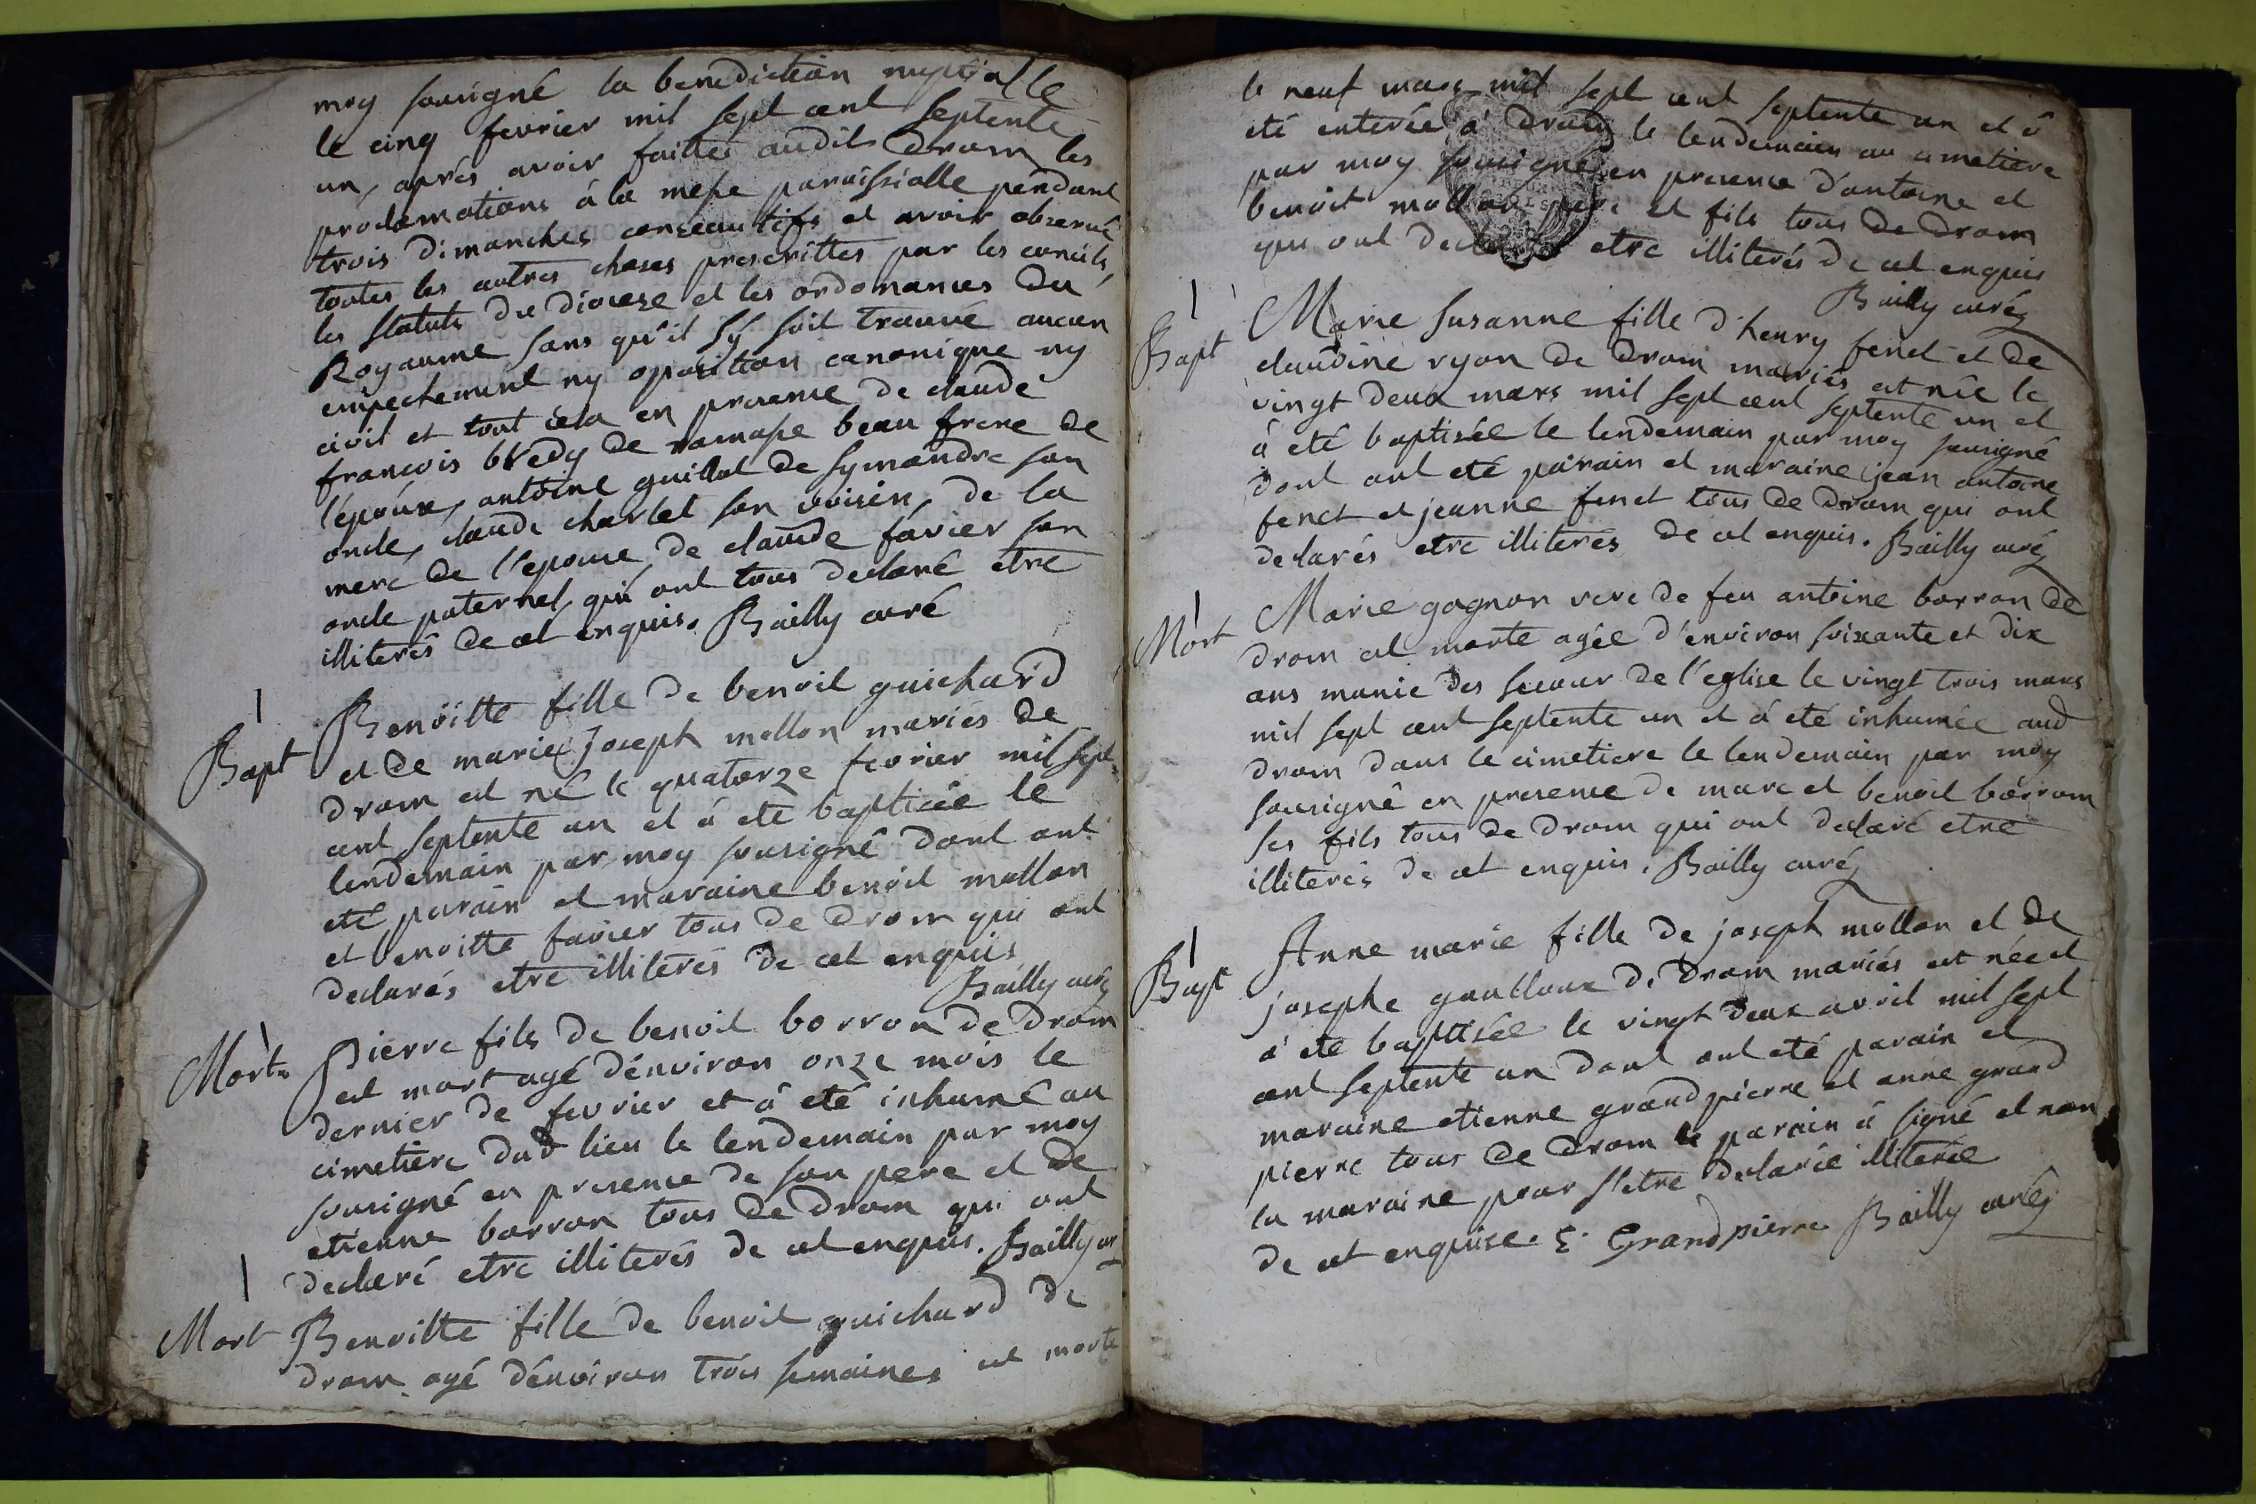 moy sousigné la benediction nuptialle
le cinq fevrier mil sept cent septente
un, aprés avoir faittes audit Drom les
proclamations á la messe paroissialle pendant
trois dimanches consecautifs et avoir observé
toutes les autres choses prescrittes par les conciles,
les statuts du dioceze et les ordonances du
Royaume sans qu'il sy soit trouvé aucun
empechement ny oposition canonique ny
civil et tout cela en presence de claude
francois de ramasse beau frere de
l'épouse, antoine guillot de symandre son
oncle, claude charlet son voisin, de la
mere de l'epouse, de claude favier son
oncle paternel, qui ont tous declaré etre
illiterés de cet enquis. Bailly curé
Bapt
Benoitte fille de benoit guichard
et de marie Joseph mollon mariés de
drom est né le quatorze fevrier mil sept
cent septente un et á eté baptisée le
lendemain par moy sousigné dont ont
eté parain et maraine benoit mollon
et benoitte favier tous de Drom qui ont
declarés etre illiterés de cet enquis
Bailly curé
Mort
Pierre fils de benoit borron de Drom
est mort agé d'environ onze mois le
dernier de fevrier et á eté inhumé au
cimetiere dud lieu le lendemain par moy
sousigné en presence de son pere et de
etienne borron tous de Drom qui ont
declaré etre illiterés de cet enquis. Bailly
Mort
Benoitte fille de benoit guichard de
drom agé d'environ trois semaines est morte
le neuf mars mil sept cent septente un et á
eté enterée á Drom le lendemain au cimetiere
par moy sousigné en presence d'antoine et
benoit mollon pere et fils tous de Drom
qui ont declaré etre illiterés de cet enquis
Bailly curé
Bapt
Marie Susanne fille d'henry fenet et de
claudine ryon de Drom mariés est née le
vingt deux mars mil sept cent septente un et
á eté baptisée le lendemain par moy sousigné
dont ont eté parain et maraine jean antoine
fenet et jeanne fenet tous de Drom qui ont
declarés etre illiterés de cet enquis. Bailly curé
Mort
Marie gagnon veve de feu antoine borron de
drom est morte agée d'environ soixante et dix
ans munie des secour de l'eglise le vingt trois mars
mil sept cent septente un et á eté inhumée aud
drom dans le cimetiere le lendemain par moy
sousigné en presence de marc et benoit borron
ses fils tous de Drom qui ont declaré etre
illiterés de cet enquis. Bailly curé
Bapt
Anne marie fille de joseph mollon et de
josephe de Drom mariés est née et
á eté baptisée le vingt deux avril mil sept
cent septente un dont ont eté parain et
maraine etienne grandpierre et anne grand
pierre tous de Drom le parain á signé et non
la maraine pour s'etre declarée illiterée
de cet enquise. E. Grandpierre Bailly curé